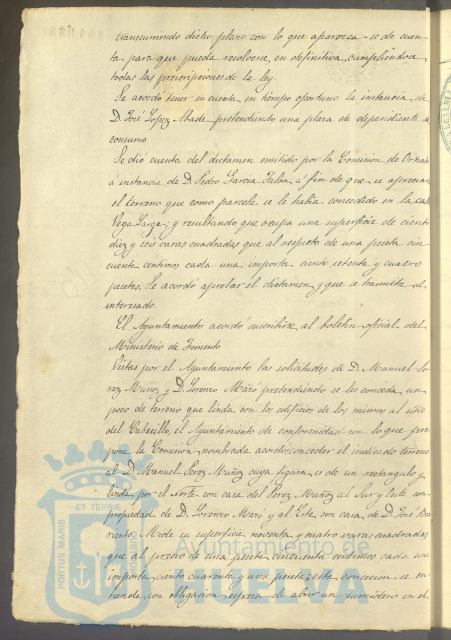 transcurriendo dicho plazo con lo que aparezca se de cuen-
ta para que pueda resolverse en definitiva cumpliendose
todas las prescripciones de la ley.
Se acordó tener en cuenta en tiempo oportuno la instancia de
D. José Lopez Abade pretendiendo una plaza de dependiente de
consumo
Se dió cuenta del dictamen emitido por la Comision de Ornato
á instancia de D. Pedro Garcia á fin de que se apreciara
el terreno que como parcela se le habia concedido en la calle
Vega Larga; y resultando que ocupa una superficie de ciento
diez y seis varas cuadradas que al respecto de una peseta cin
cuenta centimos cada una importa ciento setenta y cuatro
pesetas, Se acordo aprobar el dictamen y que se tramite al
interesado.
El Ayuntamiento acordó suscribirse al boletin oficial del
Ministerio de Fomento
Vistas por el Ayuntamiento las solicitudes de D. Manuel Pe
rez Muñoz y D. Lorenzo Mazo pretendiendo se les conceda un
poco de terreno que linda con los edificios de los mismos al sitio
del Cabecillo, el Ayuntamiento de conformidad con lo que pro
pone la Comision nombrada acordó conceder el indicado terreno
al D. Manuel Perez Muñoz cuya figura es de un rectangulo y
linda por el Norte con casa del Perez Muñoz al Sur y Oeste con
propiedad de D. Lorenzo Mazo y al Este con casa de D. José
Mide su superficie noventa y cuatro varas cuadradas
que al precio de una peseta cincuenta centimos cada una
importa ciento cuarenta y una peseta; esta concesion se en
tiende con obligacion expresa de abrir un sumidero en el
PORTUS MARIS
ET TERRAE
Ayuntamiento de
HUELVA